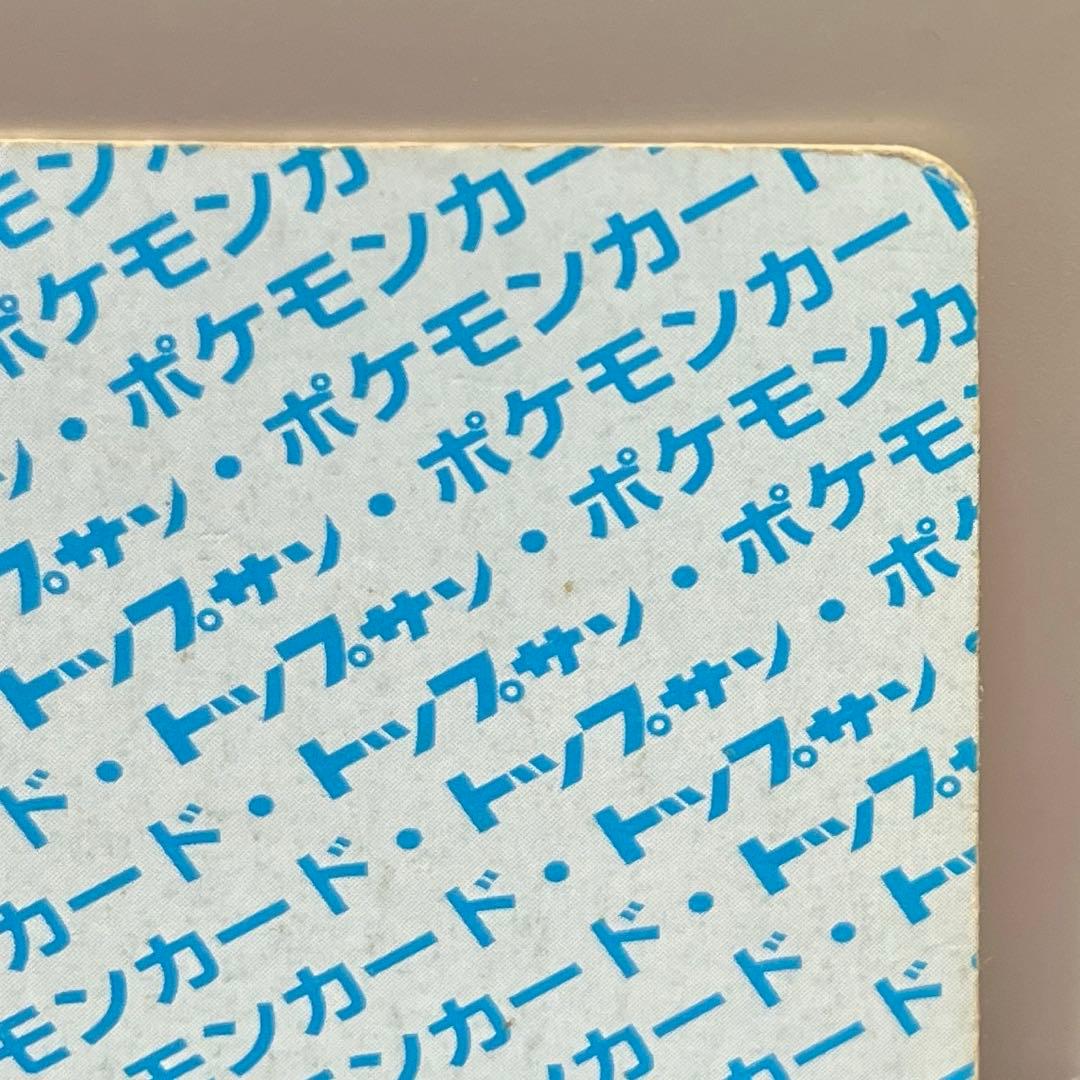 モン
ポケモンカ
ン・ポケモンカー
プサン・ポケモンカード
トップサン・ポケモンカード
ド・トップサン・ポケモンカ
カード・トップサン・ポケモ
モンカード・トップサン・ポ
モンカード・トップサン・
ンカード・トップサ
カード・ト
カード・